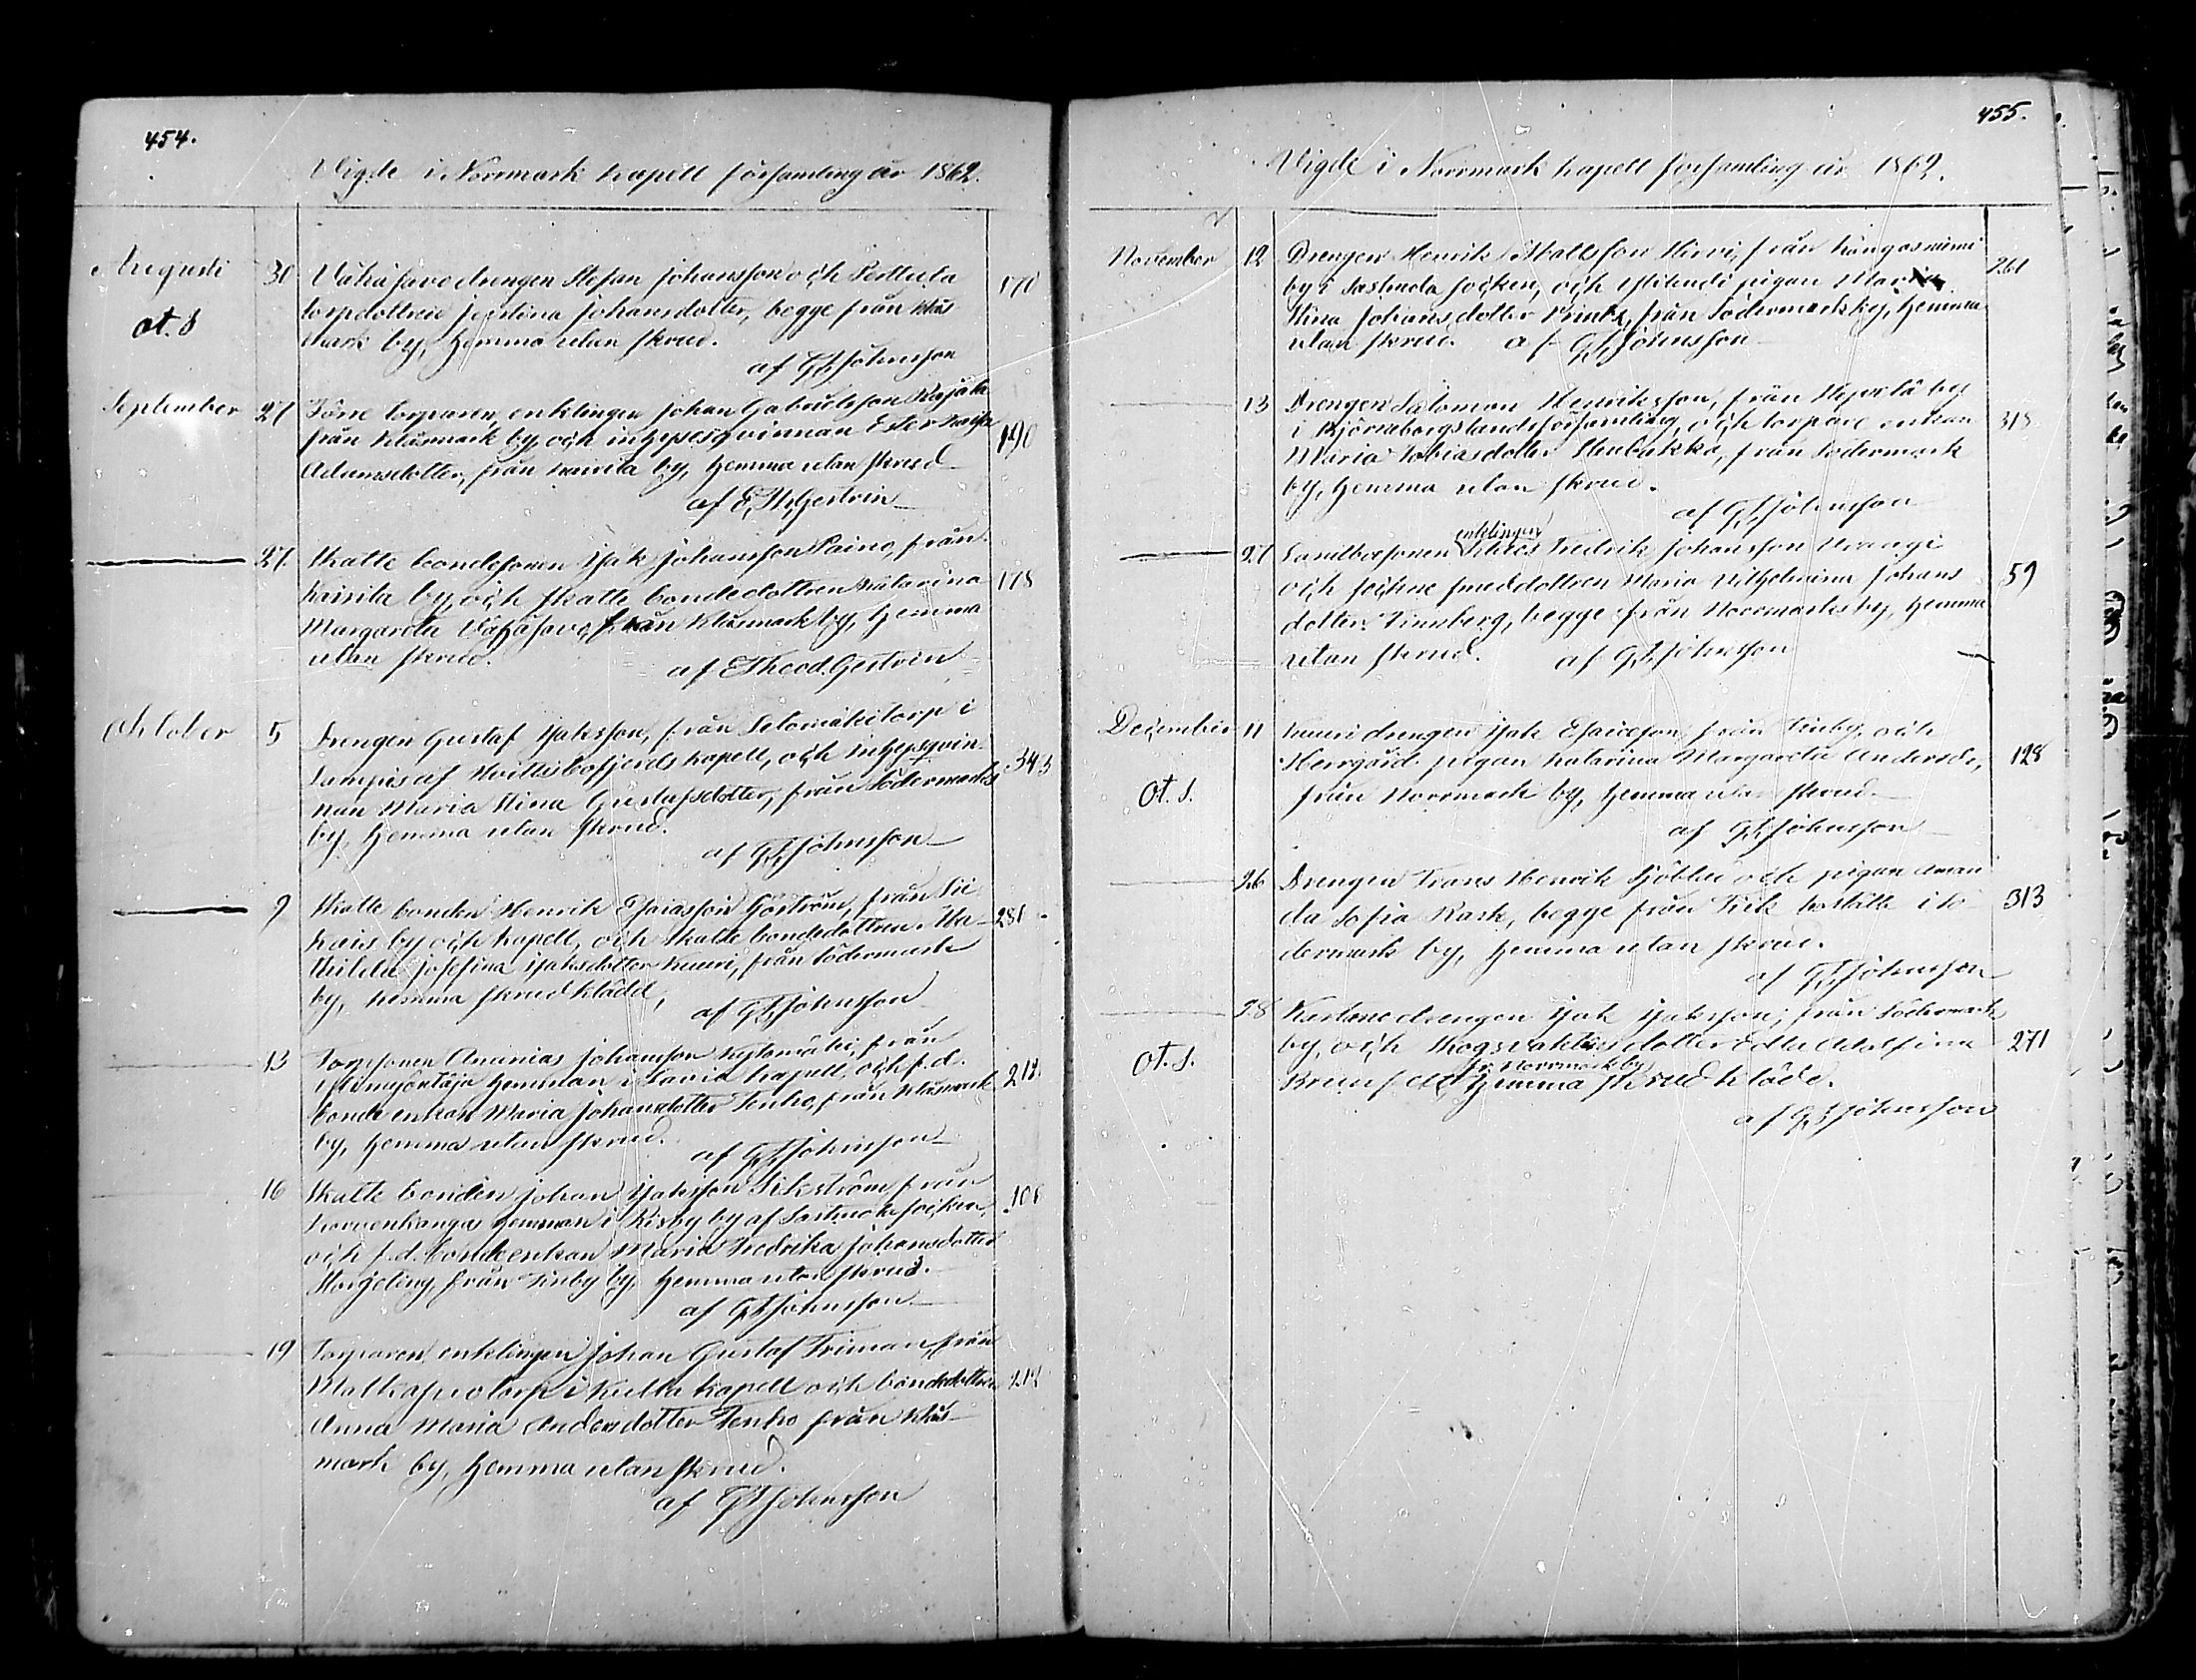 454.
Vigde i Norrmark kapell församling år 1862.
Augusti 30 Vähäsavo drengen Stefan Johansson och Perttula 170
ot. s torpdottren Justina Johansdotter, begge från Klås
mark by, hemma utan skrud.
af G. Johnsson
September 27 Förre torparen, enklingen Johan Gabrielsson Rajala
från Klåsmark by, och inhysesqvinnan Ester Kaisa 190
Adamsdotter, från Kairila by, hemma utan skrud
af E. Th. Gestrin
27 Skatte bondesonen Isak Johansson Paino, från
Kairila by, och skatte bondedottren Katarina 178
Margareta Vähäsavo, från Klåsmark by, hemma
utan skrud.
af E Theod. Gestrin
Oktober 5 Drengen Gustaf Isaksson, från Salomäki torp i
Lampis af Hvittisbofjerds kapell, och inhysqvin- 343
nan Maria Stina Gustafsdotter, från Södermarks
by, hemma utan skrud.
af G. Johnsson
9 Skatte bonden Henrik Esaiasson Göström, från Sii
kais by och kapell, och skatte bondedottren Ma- 281
thilda Josefina Isaksdotter Kuuri, från Södermark
by, hemma skrudklädd,
af G. Johnsson
13 Torpsonen Ananias Johansson Kytömäki, från
hemman i Lavia kapell, och f.d. 212
bonde enkan Maria Johansdotter Tenho, från Klåsmark
by, hemma utan skrud.
af G. Johnsson
16 Skatte bonden Johan Isaksson Sikström från
Korvenkangas hemman i Kisby by af Sastmola socken, 106
och f.d. bondeenkan Maria Fredrika Johansdotter
från Finby by, hemma utan skrud.
af G. Johnsson
19 Torparen, enklingen Johan Gustaf Friman, från
torp i Kulla kapell och bondedottren 212
Anna Maria Andersdotter Tenho från Klås-
mark by, hemma utan skrud.
af G. Johnsson
455.
Vigde i Norrmark kapell församling år 1862.
November 12 Drengen Henrik Mattsson Hirvi, från Kangasniemi 261
by i Sastmola socken, och pigan Maria
Stina Johansdotter Printz, från Södermarks by, hemma
utan skrud. af G. Johnsson
13 Drengen Salomon Henriksson, från by
i Björneborgs landsförsamling, och torpare enkan 318
Maria Tobiasdotter Stenbakka, från Södermark
by, hemma utan skrud.
af G. Johnsson
enklingen
27 Landbosonen Fredrik Johansson
och sockne smeddottren Maria Vilhelmina Johans 59
dotter Finnberg, begge från Norrmarks by, hemma
utan skrud. af G. Johnsson
December 11 Kuuri drengen Isak Esaiesson från Finby, och
Herrgård pigan Katarina Margareta Andersdr, 128
ot. s. från Norrmark by, hemma utan skrud.
af G. Johnsson
26 Drengen Frans Henrik Sjöblad och pigan Aman
da Sofia Rask, begge från i Sö 313
dermark by, hemma utan skrud.
af G. Johnsson
28 drengen Isak Isaksson, från Södermark
by, och Skogsvaktares dotter Edla Adolfina 271
fr. Norrmark by
ot. s. hemma skrudklädd.
af G. Johnsson